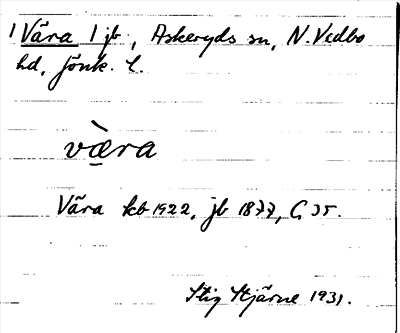 1 Våra 1 jb, Askeryds sn, N. Vedbo
hd, Jönk. l.
væ̀ra
Våra kb 1922, jb 1877, G 35.
Stig Stjärne 1931.